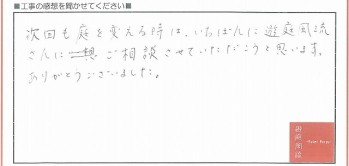 ■工事の感想を聞かせてください■
次回も庭を変える時は、いちばんに遊庭風流
さんにご相談させていただこうと思います。
ありがとうございました。
遊庭風流